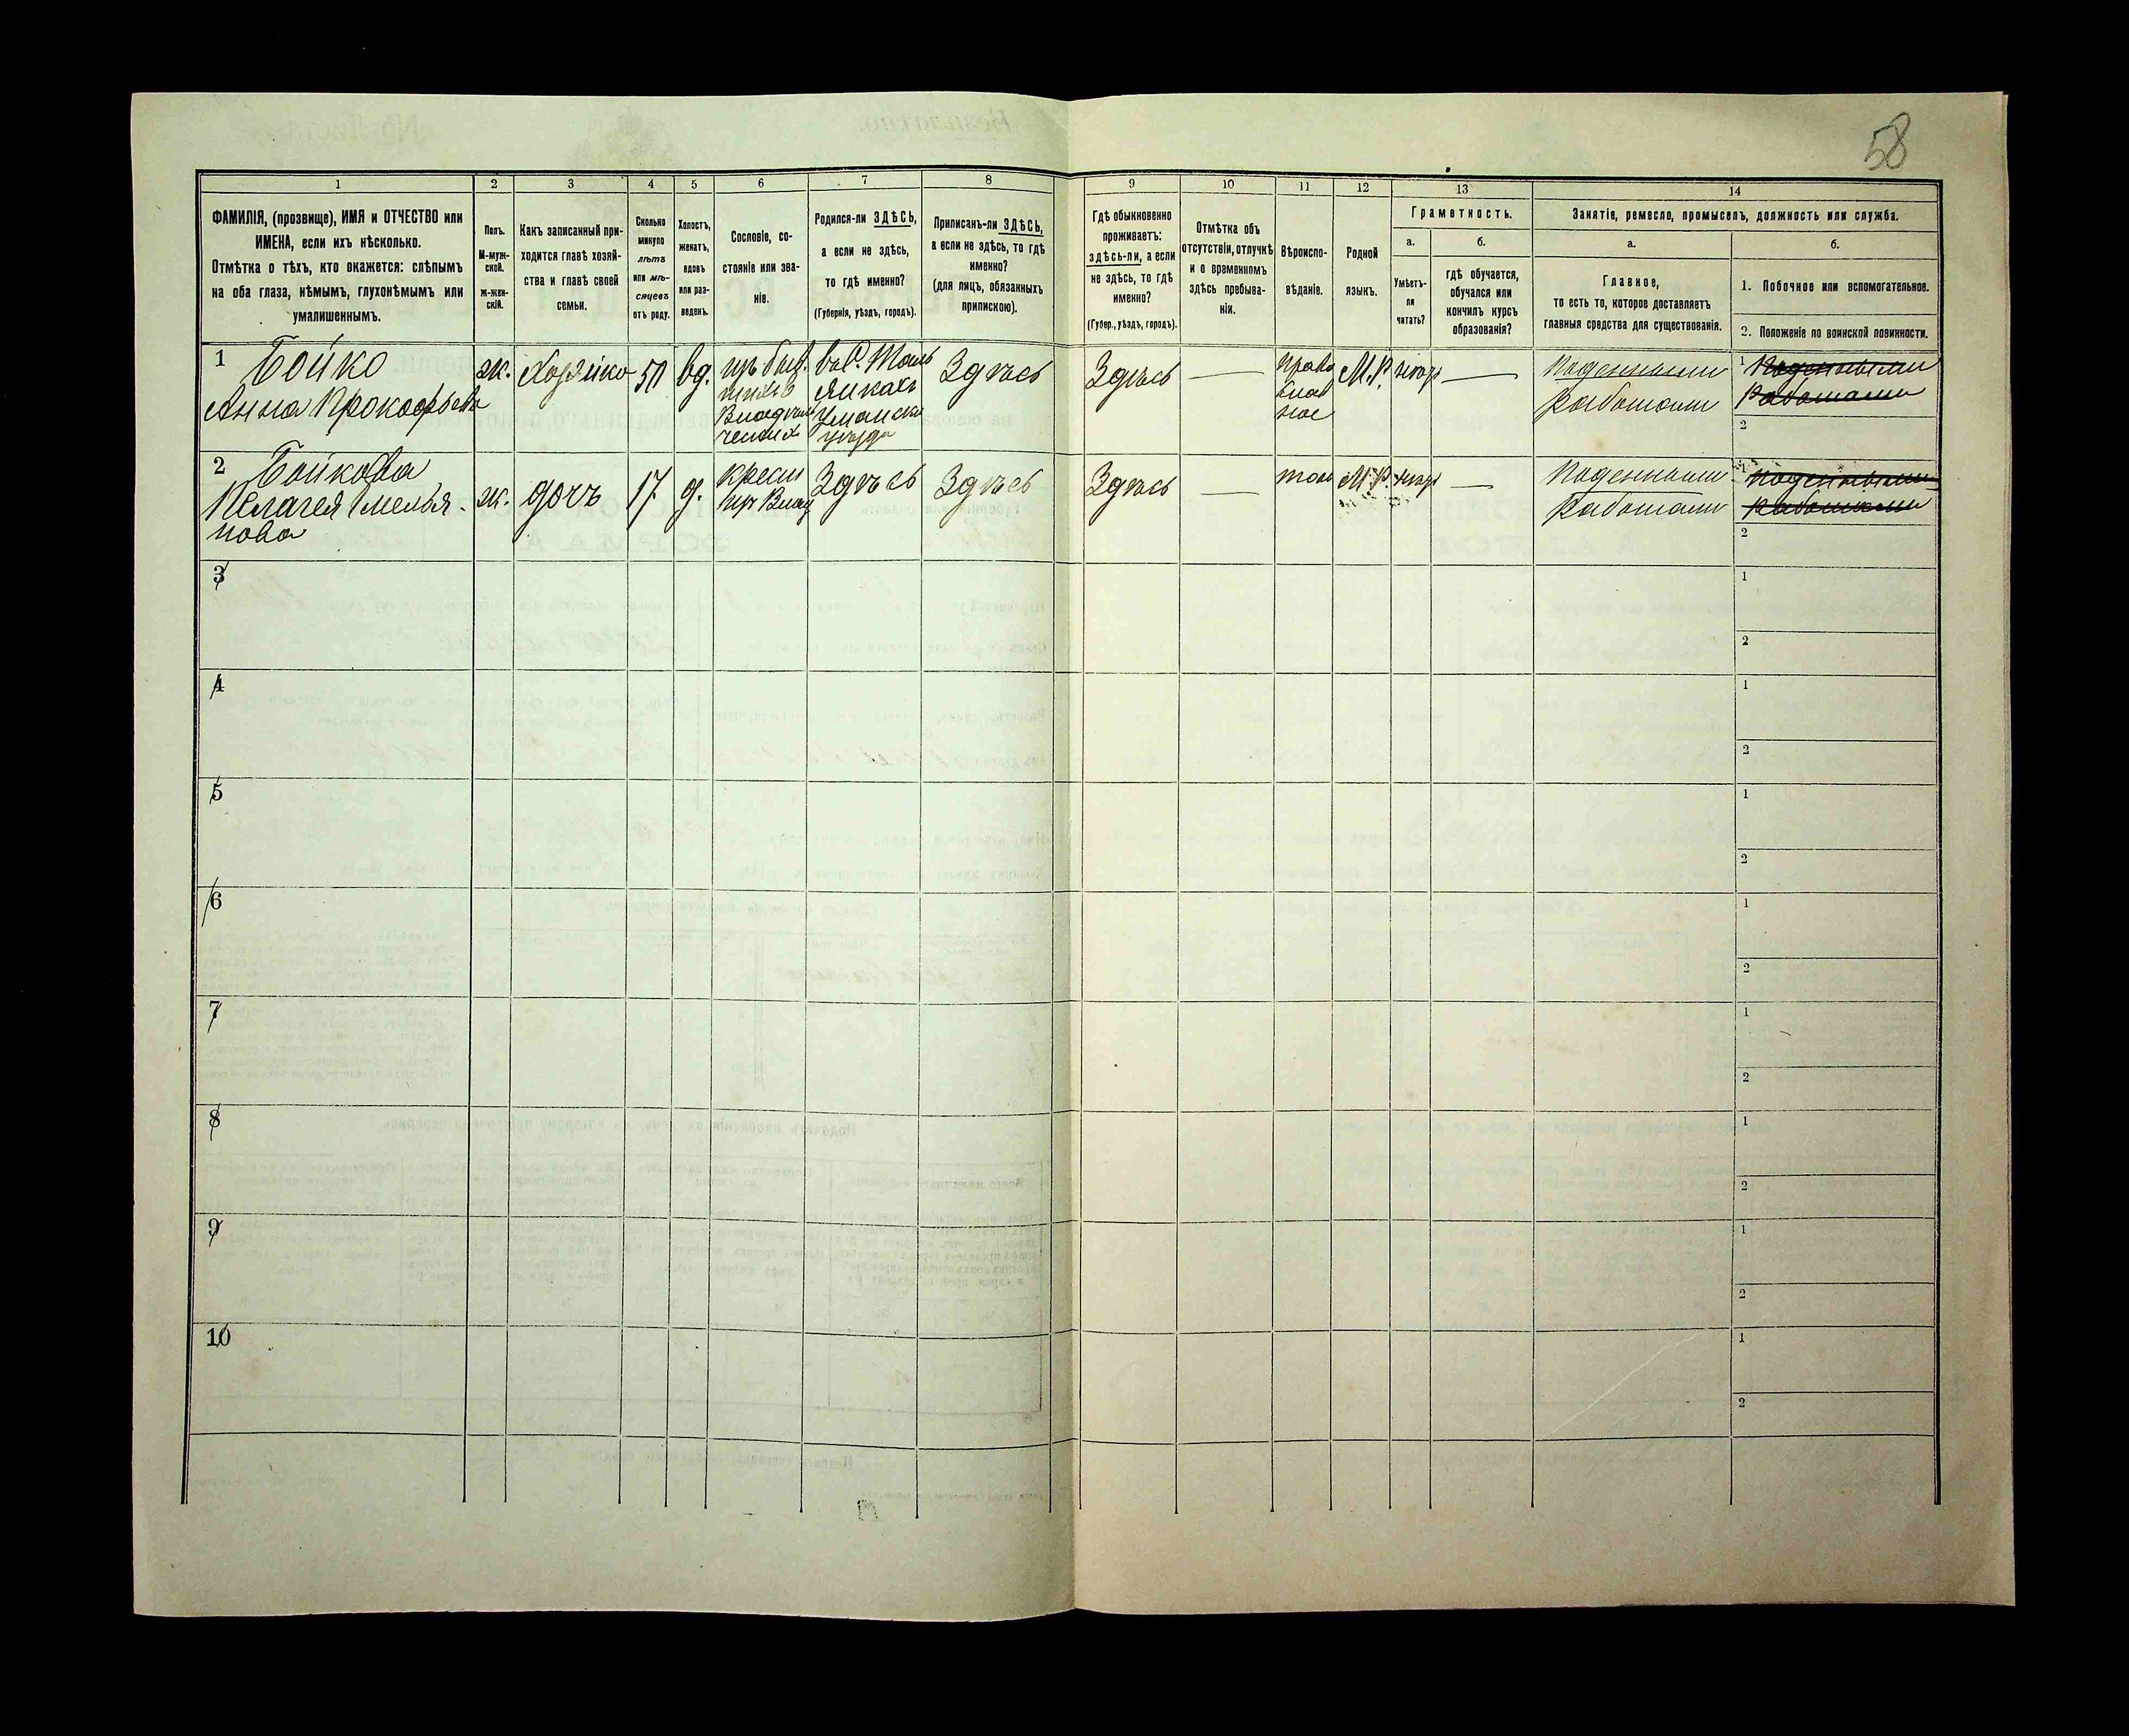 58
1
2
3
4
5
6
7
8
9
10
11
12
13
14
ФАМИЛІЯ, (прозвище), ИМЯ и ОТЧЕСТВО или
ИМЕНА, если ихъ нѣсколько.
Отмѣтка о тѣхъ, кто окажется: слѣпымъ
на оба глаза, нѣмымъ, глухонѣмымъ или
умалишеннымъ.
Полъ.
М-муж-
ской.
ж-жен-
скій.
Какъ записанный при-
ходится главѣ хозяй-
ства и главѣ своей
семьи.
Сколько
минуло
лѣтъ
или мѣ-
сяцевъ
отъ роду.
Холостъ,
женатъ,
вдовъ
или раз-
веденъ.
Сословіе, со-
стояніе или зва-
ніе.
Родился-ли ЗДѢСЬ,
а если не здѣсь,
то гдѣ именно?
(Губернія, уѣздъ, городъ).
Приписанъ-ли ЗДѢСЬ,
а если не здѣсь, то гдѣ
именно?
(для лицъ, обязанныхъ
припискою).
Гдѣ обыкновенно
проживаетъ:
здѣсь-ли, а если
не здѣсь, то гдѣ
именно?
(Губер., уѣздъ, городъ).
Отмѣтка объ
отсутствіи, отлучкѣ
и о временномъ
здѣсь пребыва-
ніи.
Вѣроиспо-
вѣданіе.
Родной
языкъ.
Грамотность.
а.
Умѣетъ-
ли
читать?
б.
гдѣ обучается,
обучался или
кончилъ курсъ
образованія?
Занятіе, ремесло, промыселъ, должность или служба.
а.
Главное,
то есть то, которое доставляетъ
главныя средства для существованія.
б.
1. Побочное или вспомогательное.
2. Положеніе по воинской повинности.
1 Бойко
Анна Прокофьева
ж.
Хозяйка
50
вд.
изъ быв.
Здѣсь
Здѣсь
—
право
слав
ное
М.Р.
—
Поденными
работами
1 Поденными
работами
2
2 Бойкова
Пелагея Емелья-
нова
ж.
дочь
17
д.
крест
Здѣсь
Здѣсь
Здѣсь
—
тоже
М.Р.
—
Поденными
работами
1 поденными
работами
2
3
1
2
4
1
2
5
1
2
6
1
2
7
1
2
8
1
2
9
1
2
10
1
2